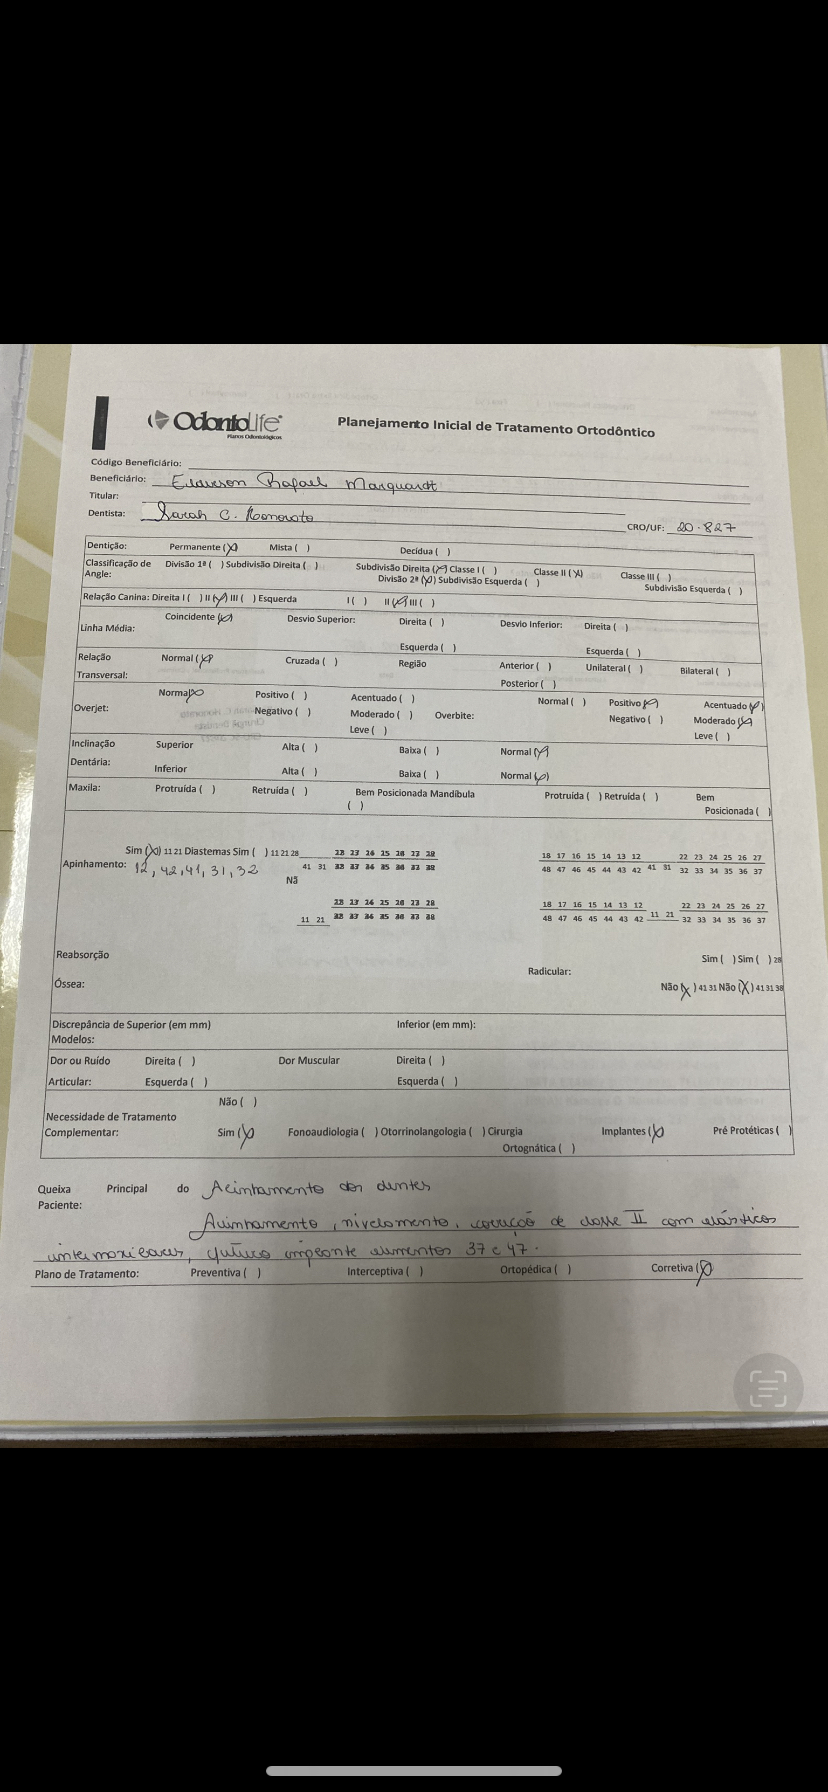 OdontoLife®
Planos Odontológicos
Planejamento Inicial de Tratamento Ortodôntico
Código Beneficiário:
Beneficiário: Rafael Marquardt
Titular:
Dentista: Sarah C. CRO/UF: 20.827
Dentição: Permanente (X) Mista ( ) Decídua ( )
Classificação de Angle: Divisão 1ª ( ) Subdivisão Direita ( ) Subdivisão Direita (X) Classe I ( ) Classe II (X) Classe III ( )
Divisão 2ª (X) Subdivisão Esquerda ( ) Subdivisão Esquerda ( )
Relação Canina: Direita I ( ) II (X) III ( ) Esquerda I ( ) II (X) III ( )
Linha Média: Coincidente (X) Desvio Superior: Direita ( ) Desvio Inferior: Direita ( )
Esquerda ( ) Esquerda ( )
Relação Transversal: Normal (X) Cruzada ( ) Região Anterior ( ) Unilateral ( ) Bilateral ( )
Posterior ( )
Overjet: Normal (X) Positivo ( ) Acentuado ( ) Normal ( ) Positivo (X) Acentuado (X)
Negativo ( ) Moderado ( ) Overbite: Negativo ( ) Moderado (X)
Leve ( ) Leve ( )
Inclinação Superior Alta ( ) Baixa ( ) Normal (X)
Dentária: Inferior Alta ( ) Baixa ( ) Normal (X)
Maxila: Protruída ( ) Retruída ( ) Bem Posicionada Mandíbula ( ) Protruída ( ) Retruída ( ) Bem Posicionada ( )
Sim (X) 11 21 Diastemas Sim ( ) 11 21 28
Apinhamento: 12, 42, 41, 31, 32
41 31
Nã
18 17 16 15 14 13 12 22 23 24 25 26 27
48 47 46 45 44 43 42 41 31 32 33 34 35 36 37
11 21
18 17 16 15 14 13 12 22 23 24 25 26 27
48 47 46 45 44 43 42 11 21 32 33 34 35 36 37
Reabsorção Radicular: Sim ( ) Sim ( ) 28
Óssea: Não (X) 41 31 Não (X) 41 31 38
Discrepância de Superior (em mm) Inferior (em mm):
Modelos:
Dor ou Ruído Direita ( ) Dor Muscular Direita ( )
Articular: Esquerda ( ) Esquerda ( )
Não ( )
Necessidade de Tratamento
Complementar: Sim (X) Fonoaudiologia ( ) Otorrinolangologia ( ) Cirurgia Implantes (X) Pré Protéticas ( )
Ortognática ( )
Queixa Principal do Paciente: Alinhamento dos dentes
Alinhamento, nivelamento, correção de classe II com elásticos
intermaxilares, futuro implante elementos 37 e 47.
Plano de Tratamento: Preventiva ( ) Interceptiva ( ) Ortopédica ( ) Corretiva (X)